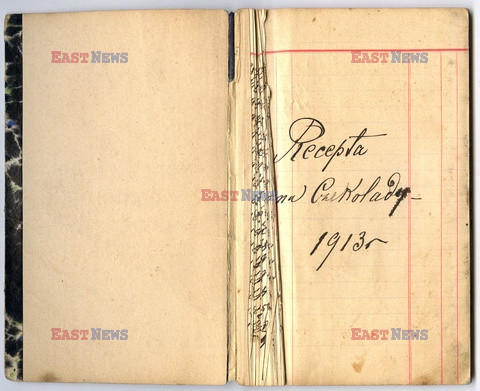 EAST NEWS
EAST NEWS
Recepta
EAST NEWS
na Czekolady
1913r
EAST NEWS
EAST NEWS